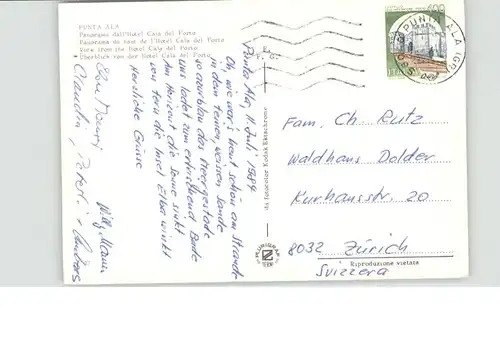 PUNTA ALA
Panorama dall'Hotel Cala del Porto
Panorama de base de l'Hotel Cala del Porto
View from the hotel Cala del Porto
Überblick von der Hotel Cala del Porto
Punta Ala, 11. Juli 1984
Oh, wie war's heut schön am Strande
in dem feinen, weissen Sande
so azurblau das Meergestade
uns ladet zum erfrischend Bade
Am Horizont die Sonne sinkt
von fern die Insel Elba winkt
Herzliche Grüsse
Claudia, Peter +
Ektachrome Kodak
PUNTA ALA (GR)
600
Fam. Ch Rutz
Waldhaus Dolder
Kurhausstr. 20
8032 Zürich
Svizzera
Riproduzione vietata